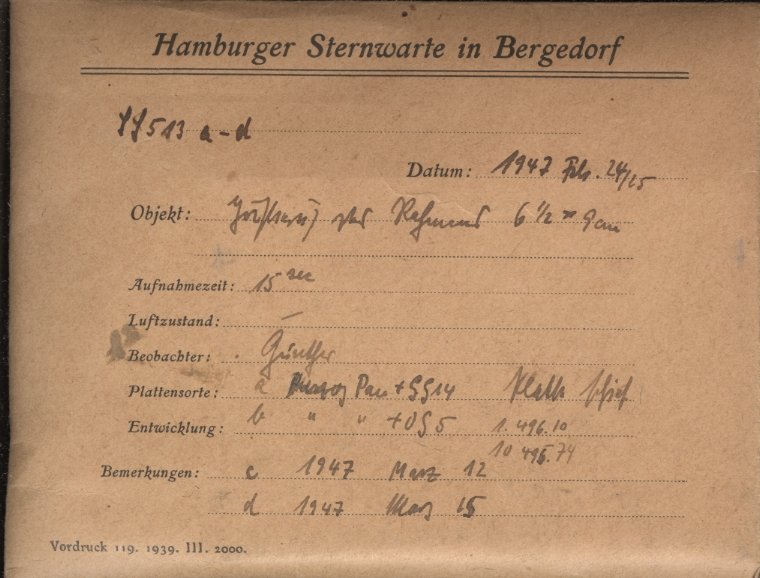 Hamburger Sternwarte in Bergedorf
513 a-d
Datum: 1947 Feb. 24/25
Objekt: 6 1/2 x 9 cm
Aufnahmezeit: 15 sec
Luftzustand: —
Beobachter: Günther
Plattensorte: a Pan + GG14 Platte schief
Entwicklung: b " " + OG5 1. 496.10
10 495.74
Bemerkungen: c 1947 März 12
d 1947 März 15
Vordruck 119. 1939. III. 2000.